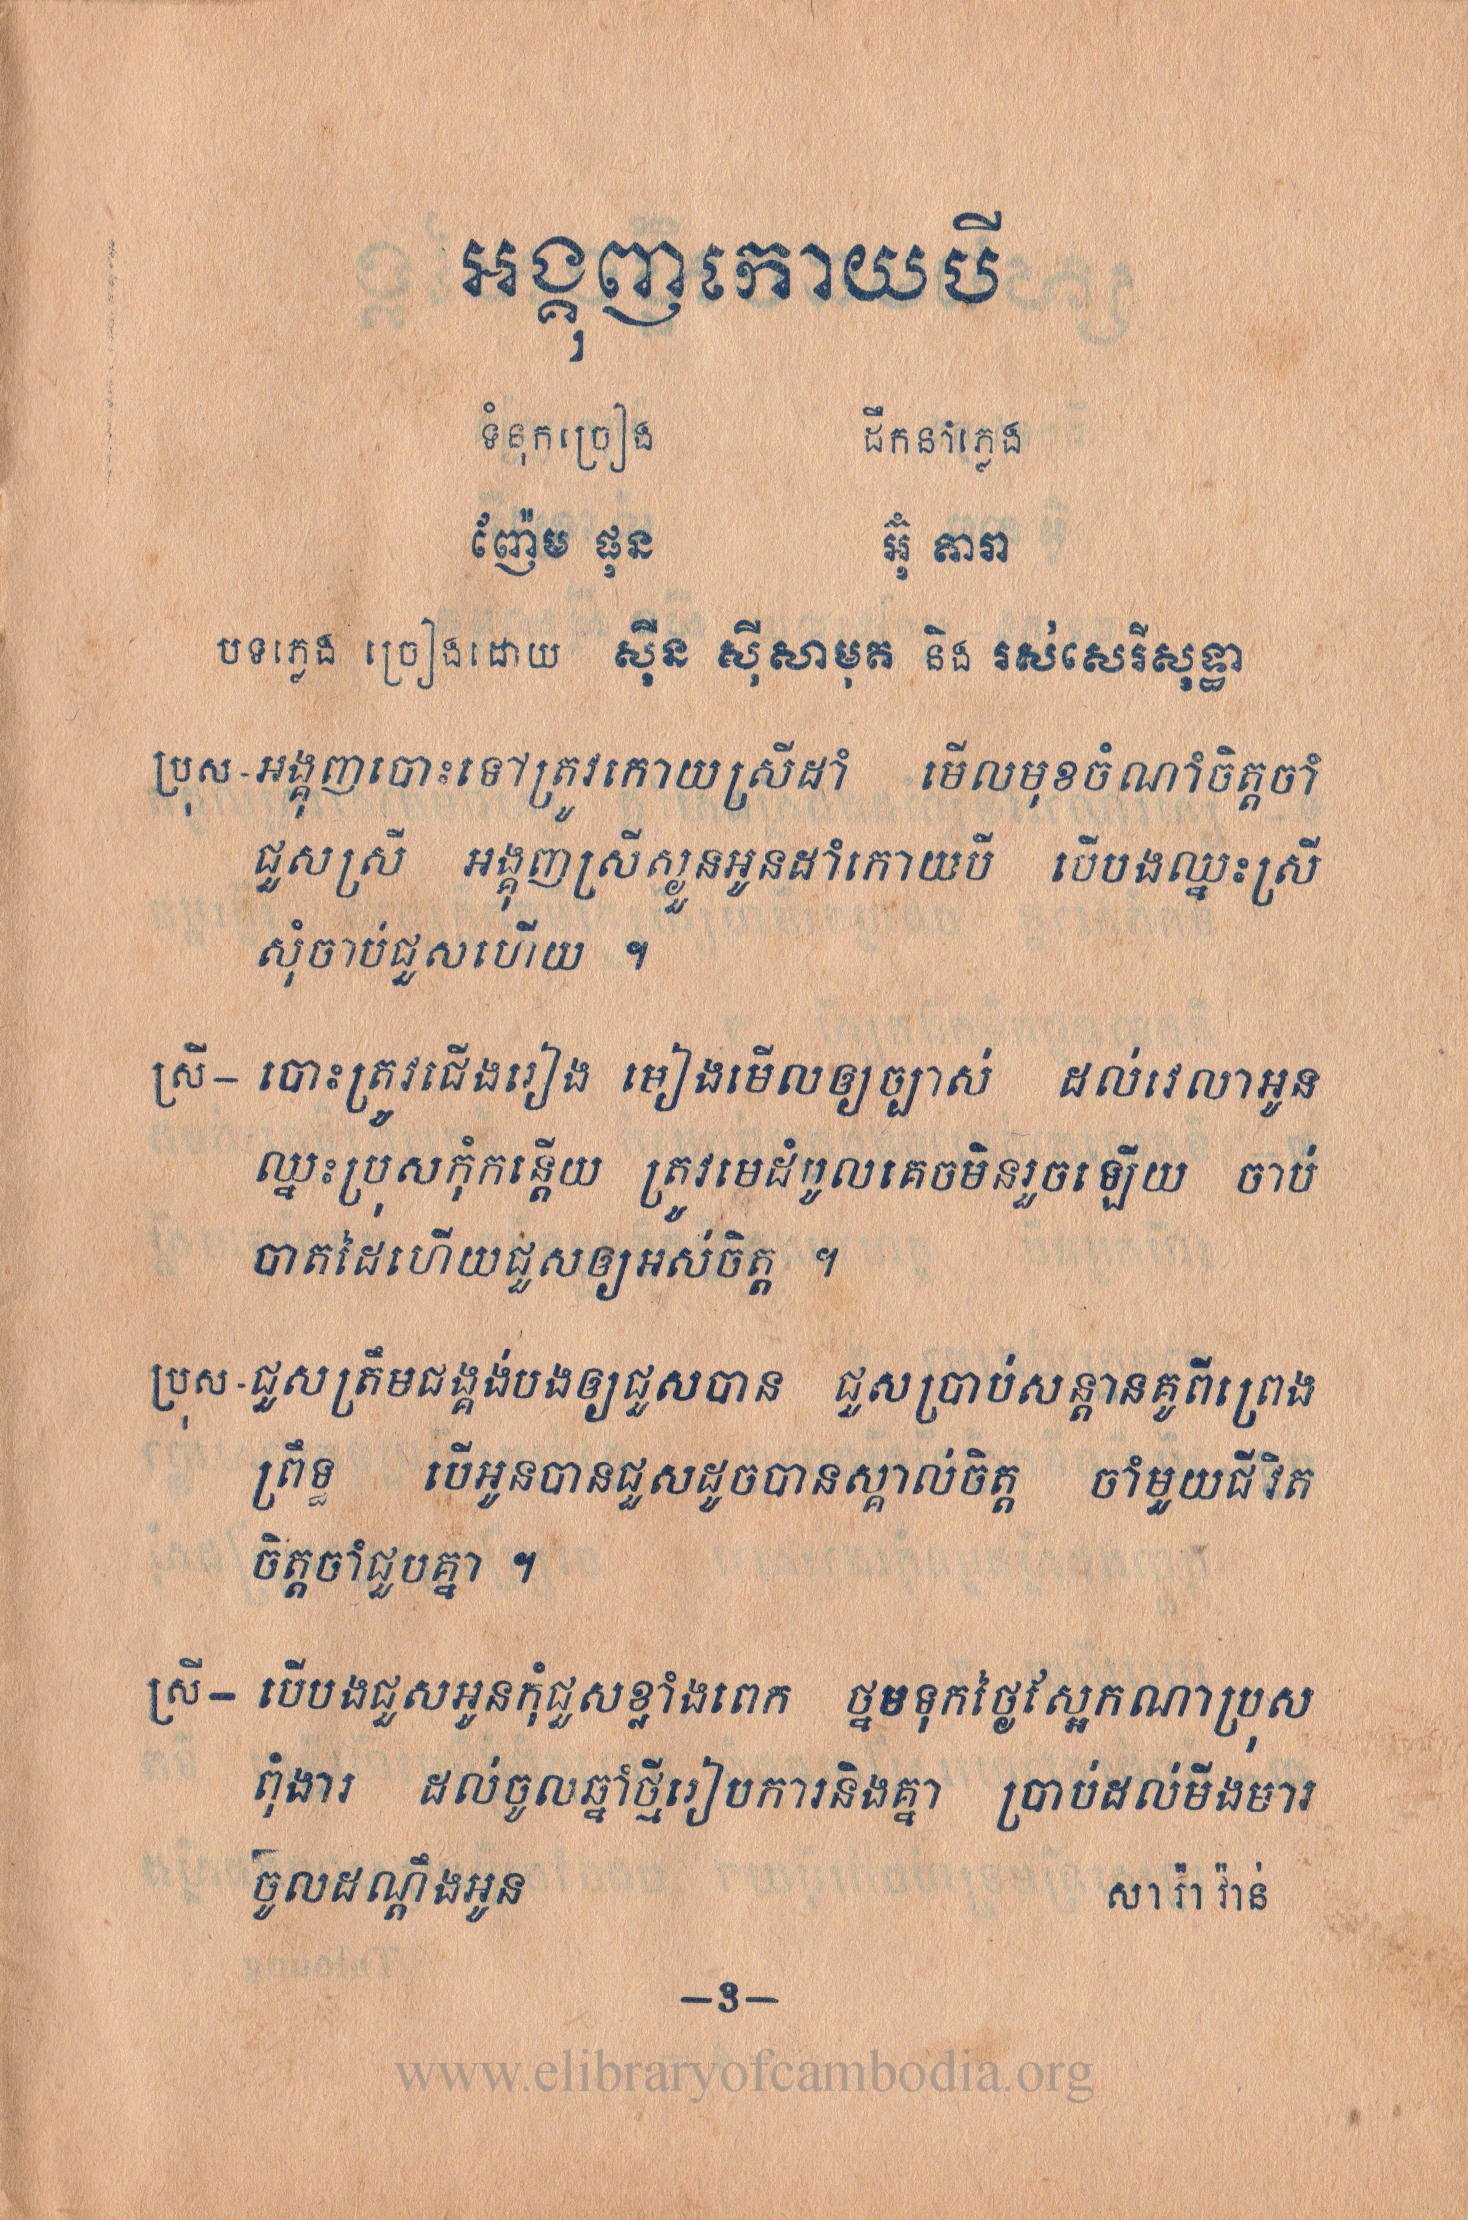 អង្គុញកោយបី
ទំនុកច្រៀង ដឹកនាំភ្លេង
ញ៉ែម ផុន អ៊ុំ តារា
បទភ្លេង ច្រៀងដោយ ស៊ីន ស៊ីសាមុត និង រស់សេរីសុទ្ធា
ប្រុស - អង្គុញបោះទៅត្រូវកោយស្រីដាំ មើលមុខចំណាំចិត្តចាំ
ជួសស្រី អង្គុញស្រីស្ងួនអូនដាំកោយបី បើបងឈ្នះស្រី
សុំចាប់ជួសហើយ ។
ស្រី – បោះត្រូវជើងរៀង មៀងមើលឲ្យច្បាស់ ដល់វេលាអូន
ឈ្នះប្រុសកុំកន្តើយ ត្រូវមេដំបូលគេចមិនរួចឡើយ ចាប់
បាតដៃហើយជួសឲ្យអស់ចិត្ត ។
ប្រុស - ជួសត្រឹមជង្គង់បងឲ្យជួសបាន ជួសប្រាប់សន្តានគូពីព្រេង
ព្រឹទ្ធ បើអូនបានជួសដូចបានស្គាល់ចិត្ត ចាំមួយជីវិត
ចិត្តចាំជួបគ្នា ។
ស្រី – បើបងជួសអូនកុំជួសខ្លាំងពេក ថ្នមទុកថ្ងៃស្អែកណាប្រុស
ពុំងារ ដល់ចូលឆ្នាំថ្មីរៀបការនិងគ្នា ប្រាប់ដល់មីងមារ
ចូលដណ្តឹងអូន សា រ៉ា វ៉ាន់
–3–
www.elibraryofcambodia.org